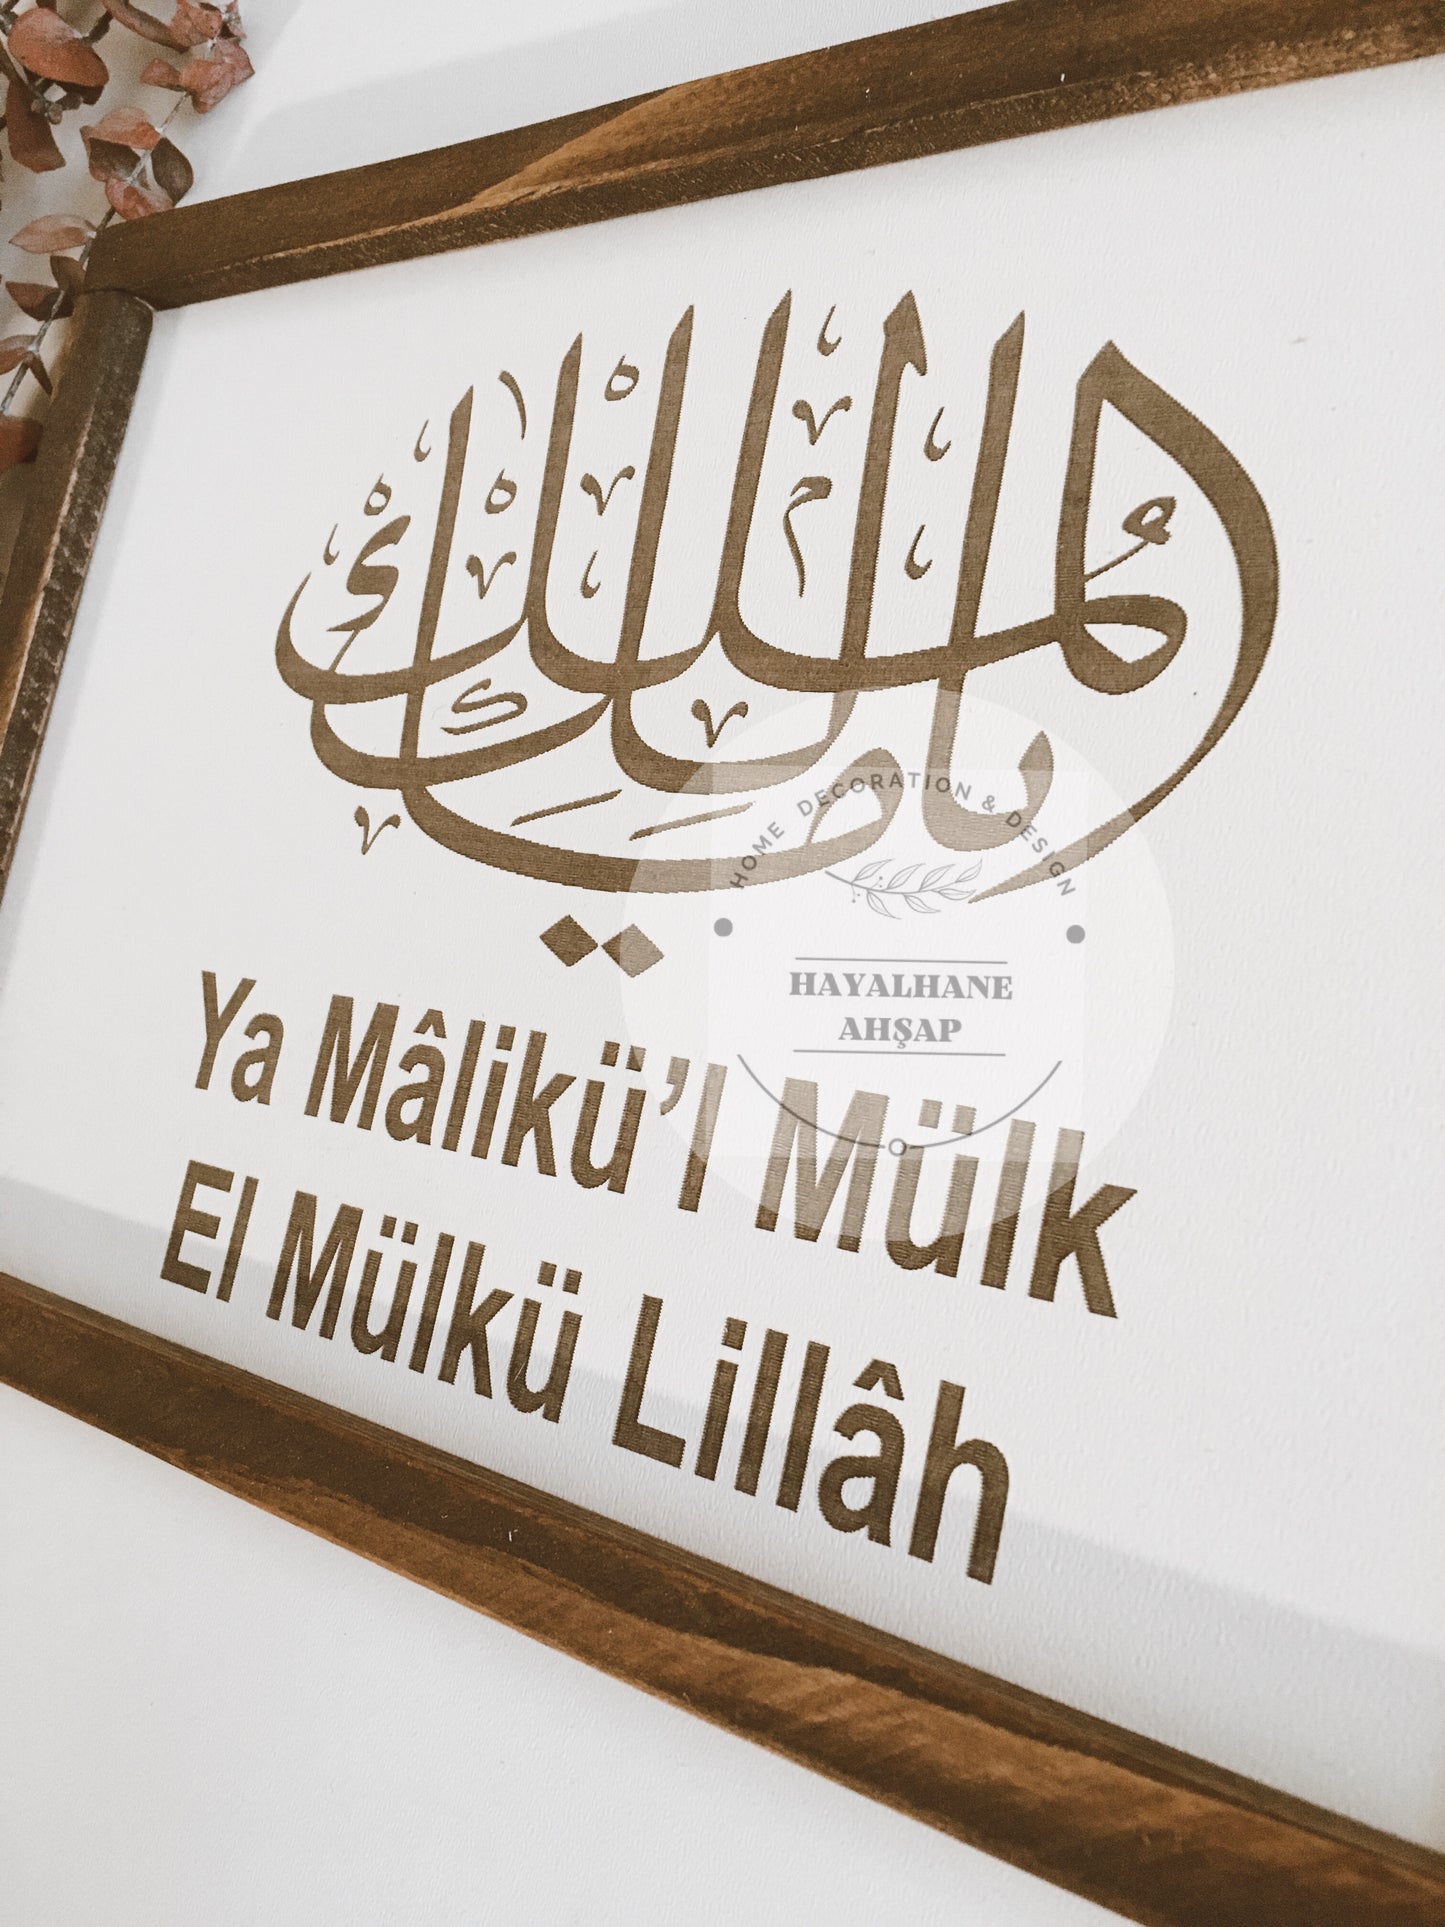 يا مالك الملك
Ya Mâlikü'l Mülk
El Mülkü Lillâh
HOME DECORATION & DESIGN
HAYALHANE
AHŞAP